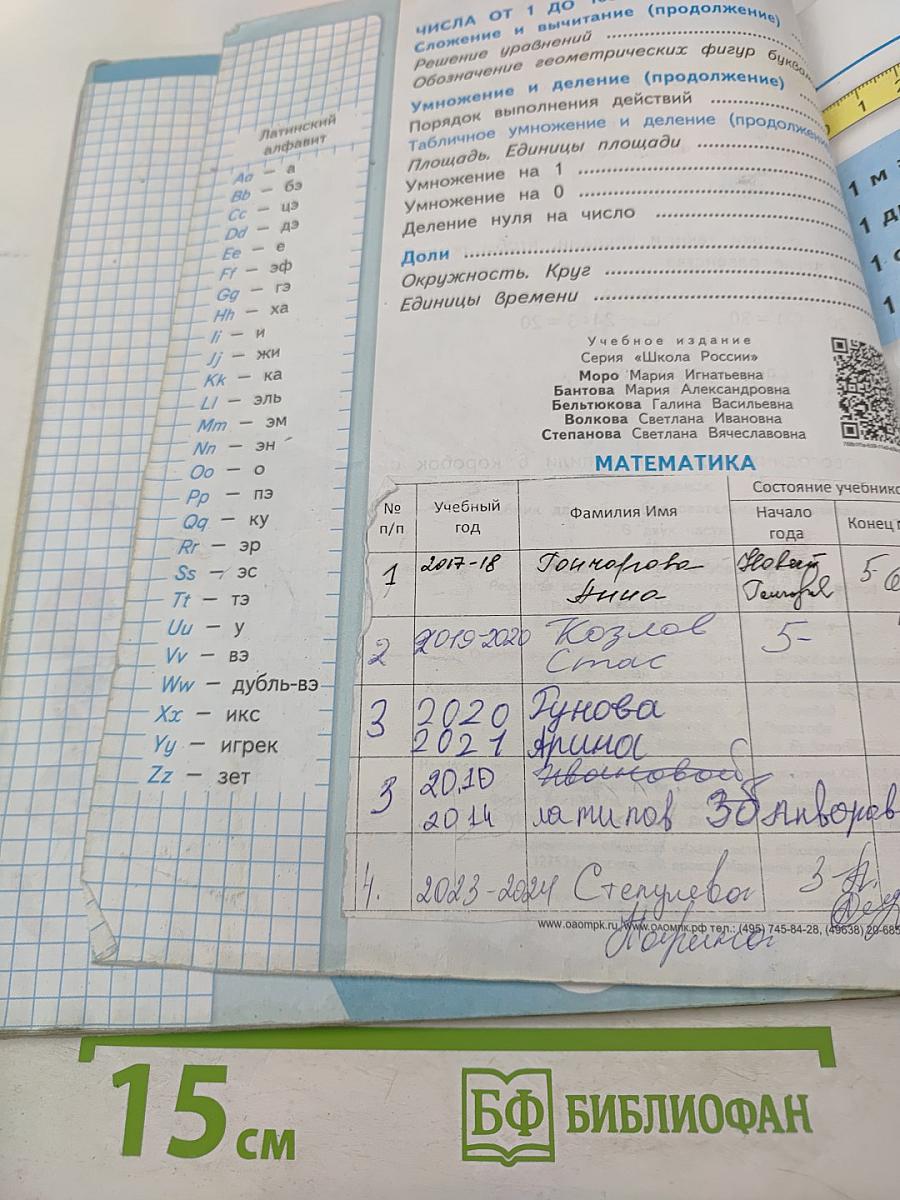 Латинский
алфавит
Aa — а
Bb — бэ
Cc — цэ
Dd — дэ
Ee — е
Ff — эф
Gg — гэ
Hh — ха
Ii — и
Jj — жи
Kk — ка
Ll — эль
Mm — эм
Nn — эн
Oo — о
Pp — пэ
Qq — ку
Rr — эр
Ss — эс
Tt — тэ
Uu — у
Vv — вэ
Ww — дубль-вэ
Xx — икс
Yy — игрек
Zz — зет
ЧИСЛА ОТ 1 ДО
Сложение и вычитание (продолжение)
Решение уравнений
Обозначение геометрических фигур
Умножение и деление (продолжение)
Порядок выполнения действий
Табличное умножение и деление
Площадь. Единицы площади
Умножение на 1
Умножение на 0
Деление нуля на число
Доли
Окружность. Круг
Единицы времени
1 м
1
1
1
Учебное издание
Серия «Школа России»
Моро Мария Игнатьевна
Бантова Мария Александровна
Бельтюкова Галина Васильевна
Волкова Светлана Ивановна
Степанова Светлана Вячеславовна
МАТЕМАТИКА
№ п/п Учебный год Фамилия Имя Состояние
Начало года Конец
1 2017-18 Гончарова Анна 5
2 2019-2020 Козлов Стас 5-
3 2020 2021 Гунова Арина
3 латипов 3б
4. 2023-2024
www.oaompk.ru, www.оаомпк.рф тел.: (495) 745-84-28,
15 см
БФ БИБЛИОФАН